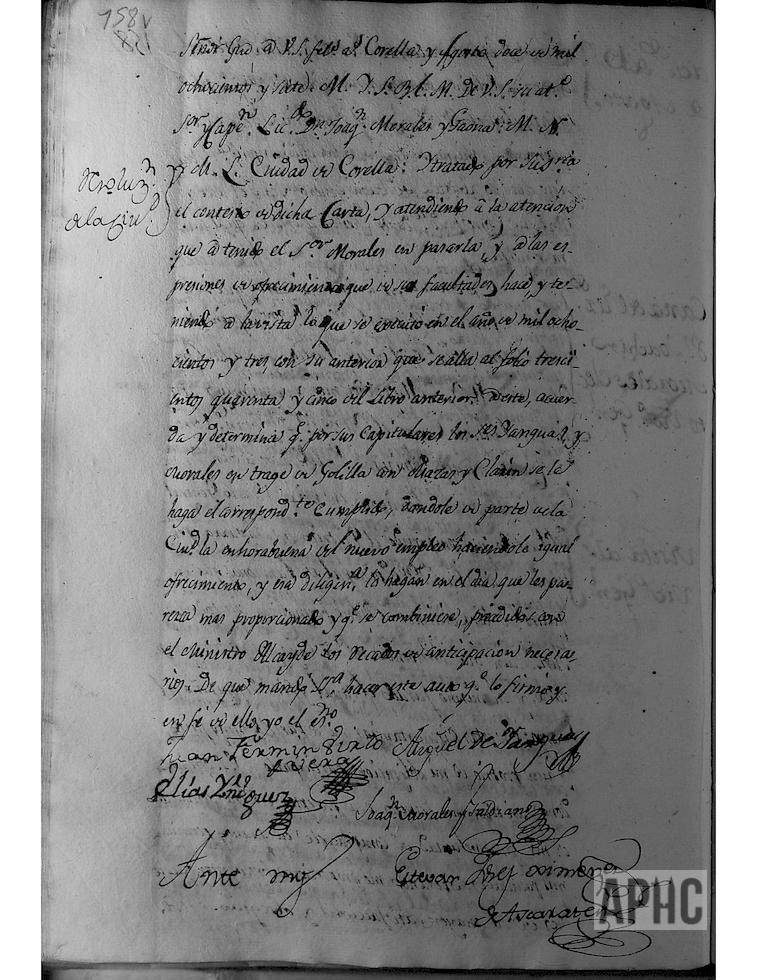 158v
158
Señor Gue a V.S. feliz as Corella y Agosto doce de mil
ochocientos y siete. M. I. S. B. L. M. De V. S. su at.o
S.or y Capn. Licdo. Dn. Joaqn. Morales y Gaona: M. N.
y M. L. Ciudad de Corella: Y tratado por su sria
Resoluzn.
de la Ciud.
el contexto de dicha Carta, y atendiendo â la atencion
que â tenido el S.or Morales en pasarla, y a las es-
presiones de ofrecimiento que de sus facultades hace, y te-
niendo a la vista lo que se executó en el año de mil ocho-
cientos y tres con su anterior que se alla al folio tresci-
entos quarenta y cinco del Libro anterior a este, acuer-
da y determina q.e por sus Capitulares los Ses Yanguas, y
Morales en trage de Golilla con Mazas y Clarin se le
haga el correspond.te Cumplido, dandole de parte de la
Ciud. la enhorabuena del nuevo empleo haciendole igual
ofrecimiento, y esa diligen.a la hagan en el dia que les pa-
rezca mas proporcionado y q.e se combiniere, precedidos con
el Ministro Alcayde los Recados de anticipacion necesa-
rios. De que mandó S.a hacer este auto q.e lo firmó y
en fe de ello yo el es.no
Juan Fermin Virto
de Vera
Miguel de Yanguas
Elias Yñiguez
Joaqn. Morales y
Ante mi
Estevan Josef Ximenez
de Ascarate
APHC